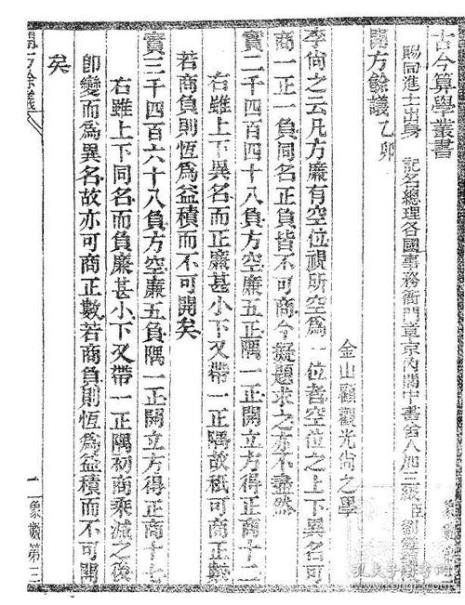 古今算學叢書
賜同進士出身 記名總理各國事務衙門章京內閣中書舍人加三級臣劉鐸
開方餘議 乙卯
金山顧觀光尚之學
李尚之云凡方廉有空位視所空爲一位者空位之上下異名可
商一正一負同名正負皆不可商今擬題求之亦不盡然
實二千四百四十八負方空廉五正隅一正開立方得正商十二
右雖上下異名而正廉甚小下又帶一正隅故秖可商正數
若商負則恆爲益積而不可開矣
實三千四百六十八負方空廉五負隅一正開立方得正商十七
右雖上下同名而負廉甚小下又帶一正隅初商乘減之後
卽變而爲異名故亦可商正數若商負則恆爲益積而不可開
矣
開方餘議
一
象數第三